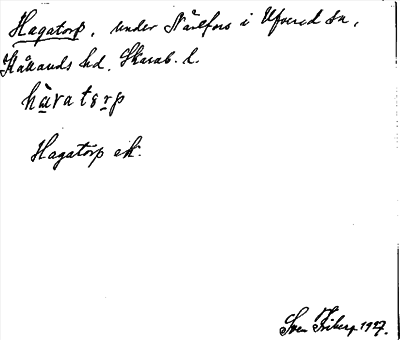 Hagatorp, under Stålfors i Ufvered sn,
Kållands hd. Skarab. l.
hàvatɛrp
Hagatorp ek.
Sven Friberg 1927.